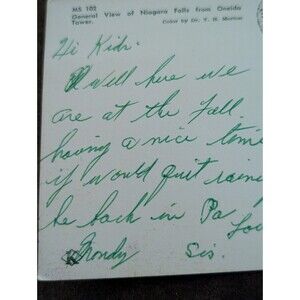 MS 102
General View of Niagara Falls from Oneida
Tower.
Color by Dr. V. B.
Hi Kids.
Well here we
are at the Fall
having a nice time
if would quit raining
be back in Pa
Mondy
Lov
Sis.